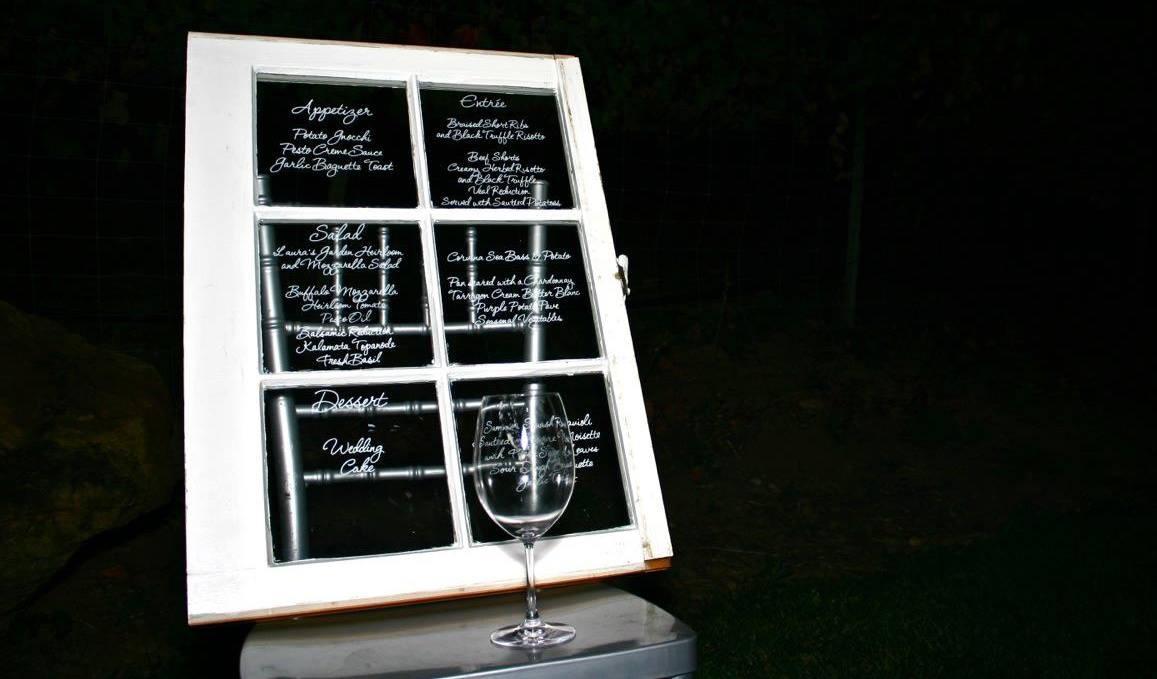 Appetizer
Potato Gnocchi
Pesto Creme Sauce
Garlic Baguette Toast
Entrée
Braised Short Ribs
and Black Truffle Risotto
Beef Shorts
Creamy Herbed Risotto
and Black Truffle
Veal Reduction
Served with Sautéed Potatoes
Salad
Laura's Garden Heirloom
and Mozzarella Salad
Buffalo Mozzarella
Heirloom Tomato
Oil
Balsamic Reduction
Kalamata Topanode
Fresh Basil
Corvina Sea Bass & Potato
Pan seared with a Chardonnay
Tarragon Cream Butter Blanc
Purple Potato Pave
Seasonal Vegetables
Dessert
Wedding
Cake
Summer Squash Ravioli
Sautéed
with
Sour